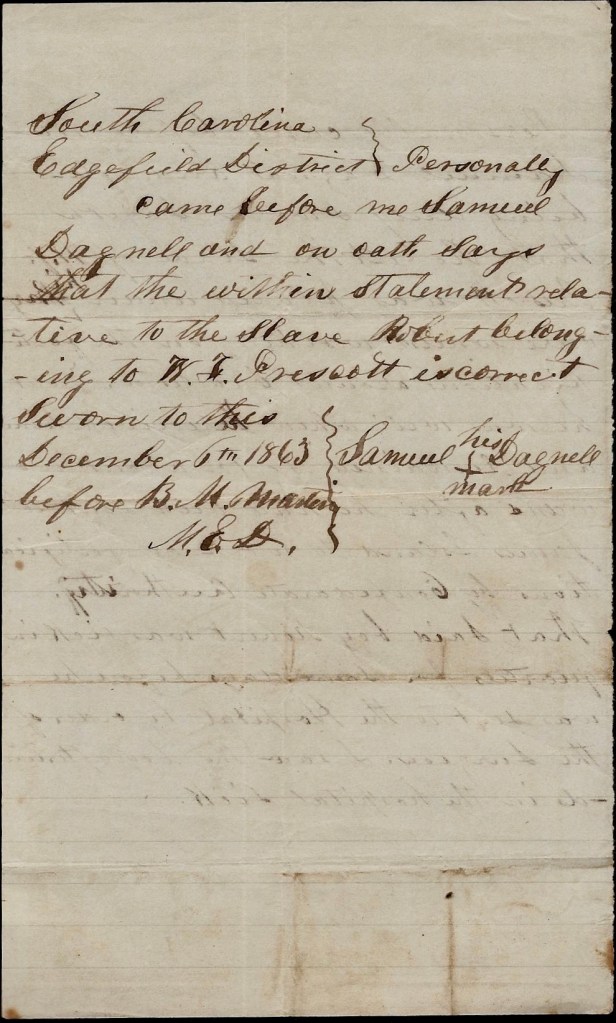 South Carolina
Edgefield District } Personally
came before me Samuel
Dagnell and on oath Says
that the within Statement rela-
-tive to the Slave Robert belong-
-ing to W. F. Prescott is correct
Sworn to this
December 6th 1863 } Samuel his + mark Dagnell
before B. M. Martin
M. E. D.